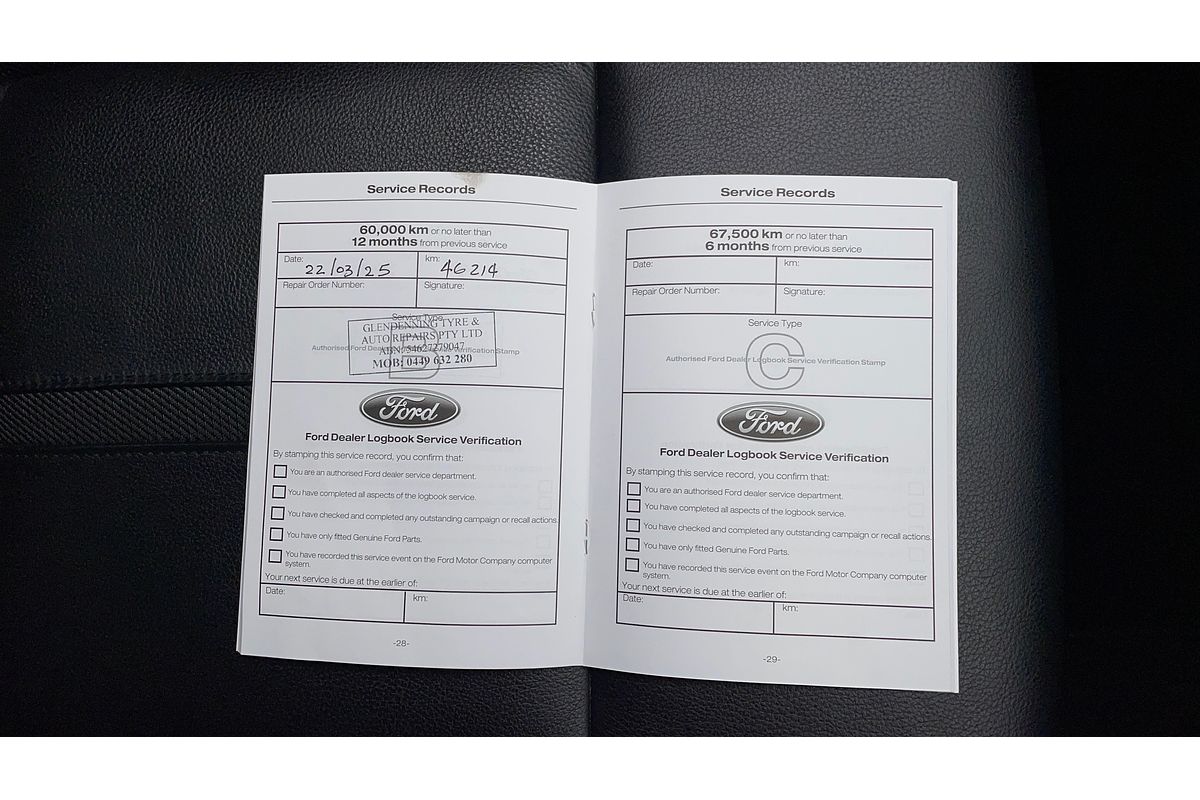 Service Records
60,000 km or no later than
12 months from previous service
Date:
22/03/25
km:
46214
Repair Order Number:
Signature:
Service Type
B
Authorised Ford Dealer Logbook Service Verification Stamp
GLENDENNING TYRE &
AUTO REPAIRS PTY LTD
ABN: 54627279047
MOB: 0449 632 280
Ford
Ford Dealer Logbook Service Verification
By stamping this service record, you confirm that:
You are an authorised Ford dealer service department.
You have completed all aspects of the logbook service.
You have checked and completed any outstanding campaign or recall actions.
You have only fitted Genuine Ford Parts.
You have recorded this service event on the Ford Motor Company computer
system.
Your next service is due at the earlier of:
Date:
km:
-28-
Service Records
67,500 km or no later than
6 months from previous service
Date:
km:
Repair Order Number:
Signature:
Service Type
C
Authorised Ford Dealer Logbook Service Verification Stamp
Ford
Ford Dealer Logbook Service Verification
By stamping this service record, you confirm that:
You are an authorised Ford dealer service department.
You have completed all aspects of the logbook service.
You have checked and completed any outstanding campaign or recall actions.
You have only fitted Genuine Ford Parts.
You have recorded this service event on the Ford Motor Company computer
system.
Your next service is due at the earlier of:
Date:
km:
-29-